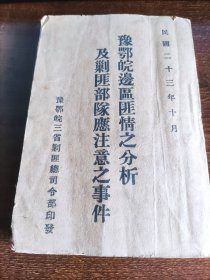 民國二十三年十月
豫鄂皖邊區匪情之分析
及剿匪部隊應注意之事件
豫鄂皖三省剿匪總司令部印發